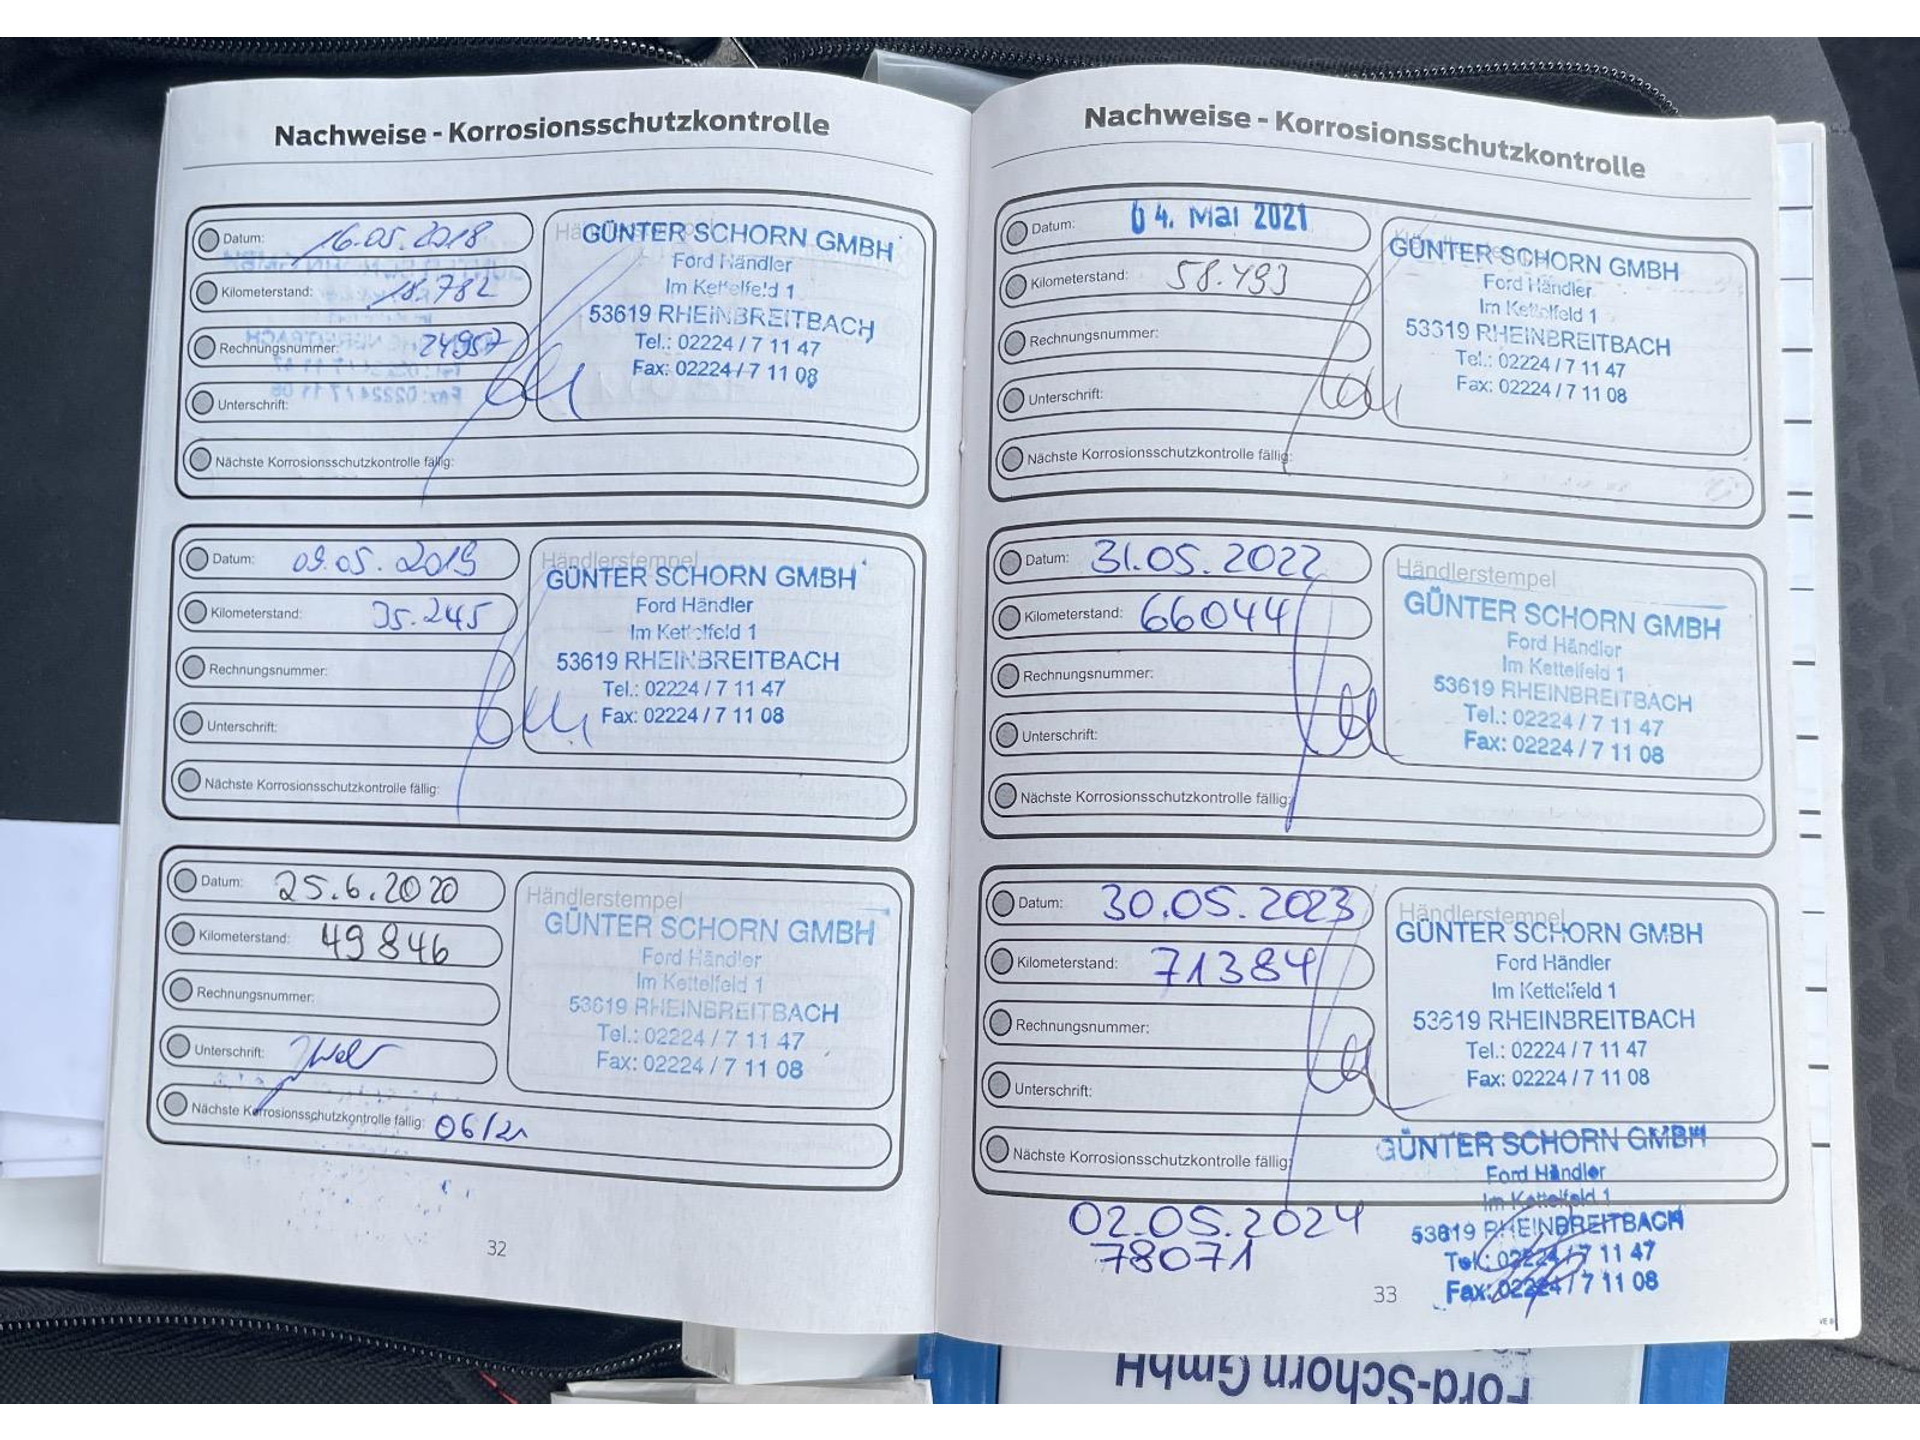 Nachweise - Korrosionsschutzkontrolle
Datum: 16.05.2018
Kilometerstand: 18.782
Rechnungsnummer: 24957
Unterschrift:
Nächste Korrosionsschutzkontrolle fällig:
GÜNTER SCHORN GMBH
Ford Händler
Im Kettelfeld 1
53619 RHEINBREITBACH
Tel.: 02224 / 7 11 47
Fax: 02224 / 7 11 08
Datum: 09.05.2019
Kilometerstand: 35.245
Rechnungsnummer:
Unterschrift:
Nächste Korrosionsschutzkontrolle fällig:
Händlerstempel
GÜNTER SCHORN GMBH
Ford Händler
Im Kettelfeld 1
53619 RHEINBREITBACH
Tel.: 02224 / 7 11 47
Fax: 02224 / 7 11 08
Datum: 25.6.2020
Kilometerstand: 49846
Rechnungsnummer:
Unterschrift:
Nächste Korrosionsschutzkontrolle fällig: 06/21
Händlerstempel
GÜNTER SCHORN GMBH
Ford Händler
Im Kettelfeld 1
53619 RHEINBREITBACH
Tel.: 02224 / 7 11 47
Fax: 02224 / 7 11 08
32
Nachweise - Korrosionsschutzkontrolle
Datum: 04. Mai 2021
Kilometerstand: 58.493
Rechnungsnummer:
Unterschrift:
Nächste Korrosionsschutzkontrolle fällig:
GÜNTER SCHORN GMBH
Ford Händler
Im Kettelfeld 1
53619 RHEINBREITBACH
Tel.: 02224 / 7 11 47
Fax: 02224 / 7 11 08
Datum: 31.05.2022
Kilometerstand: 66044
Rechnungsnummer:
Unterschrift:
Nächste Korrosionsschutzkontrolle fällig:
Händlerstempel
GÜNTER SCHORN GMBH
Ford Händler
Im Kettelfeld 1
53619 RHEINBREITBACH
Tel.: 02224 / 7 11 47
Fax: 02224 / 7 11 08
Datum: 30.05.2023
Kilometerstand: 71384
Rechnungsnummer:
Unterschrift:
Nächste Korrosionsschutzkontrolle fällig:
Händlerstempel
GÜNTER SCHORN GMBH
Ford Händler
Im Kettelfeld 1
53619 RHEINBREITBACH
Tel.: 02224 / 7 11 47
Fax: 02224 / 7 11 08
02.05.2024
78071
GÜNTER SCHORN GMBH
Ford Händler
Im Kettelfeld 1
53619 RHEINBREITBACH
Tel.: 02224 / 7 11 47
Fax: 02224 / 7 11 08
33
Ford-Schorn GmbH